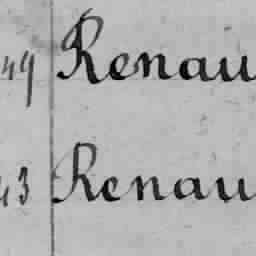 49 Renau
43 Renau